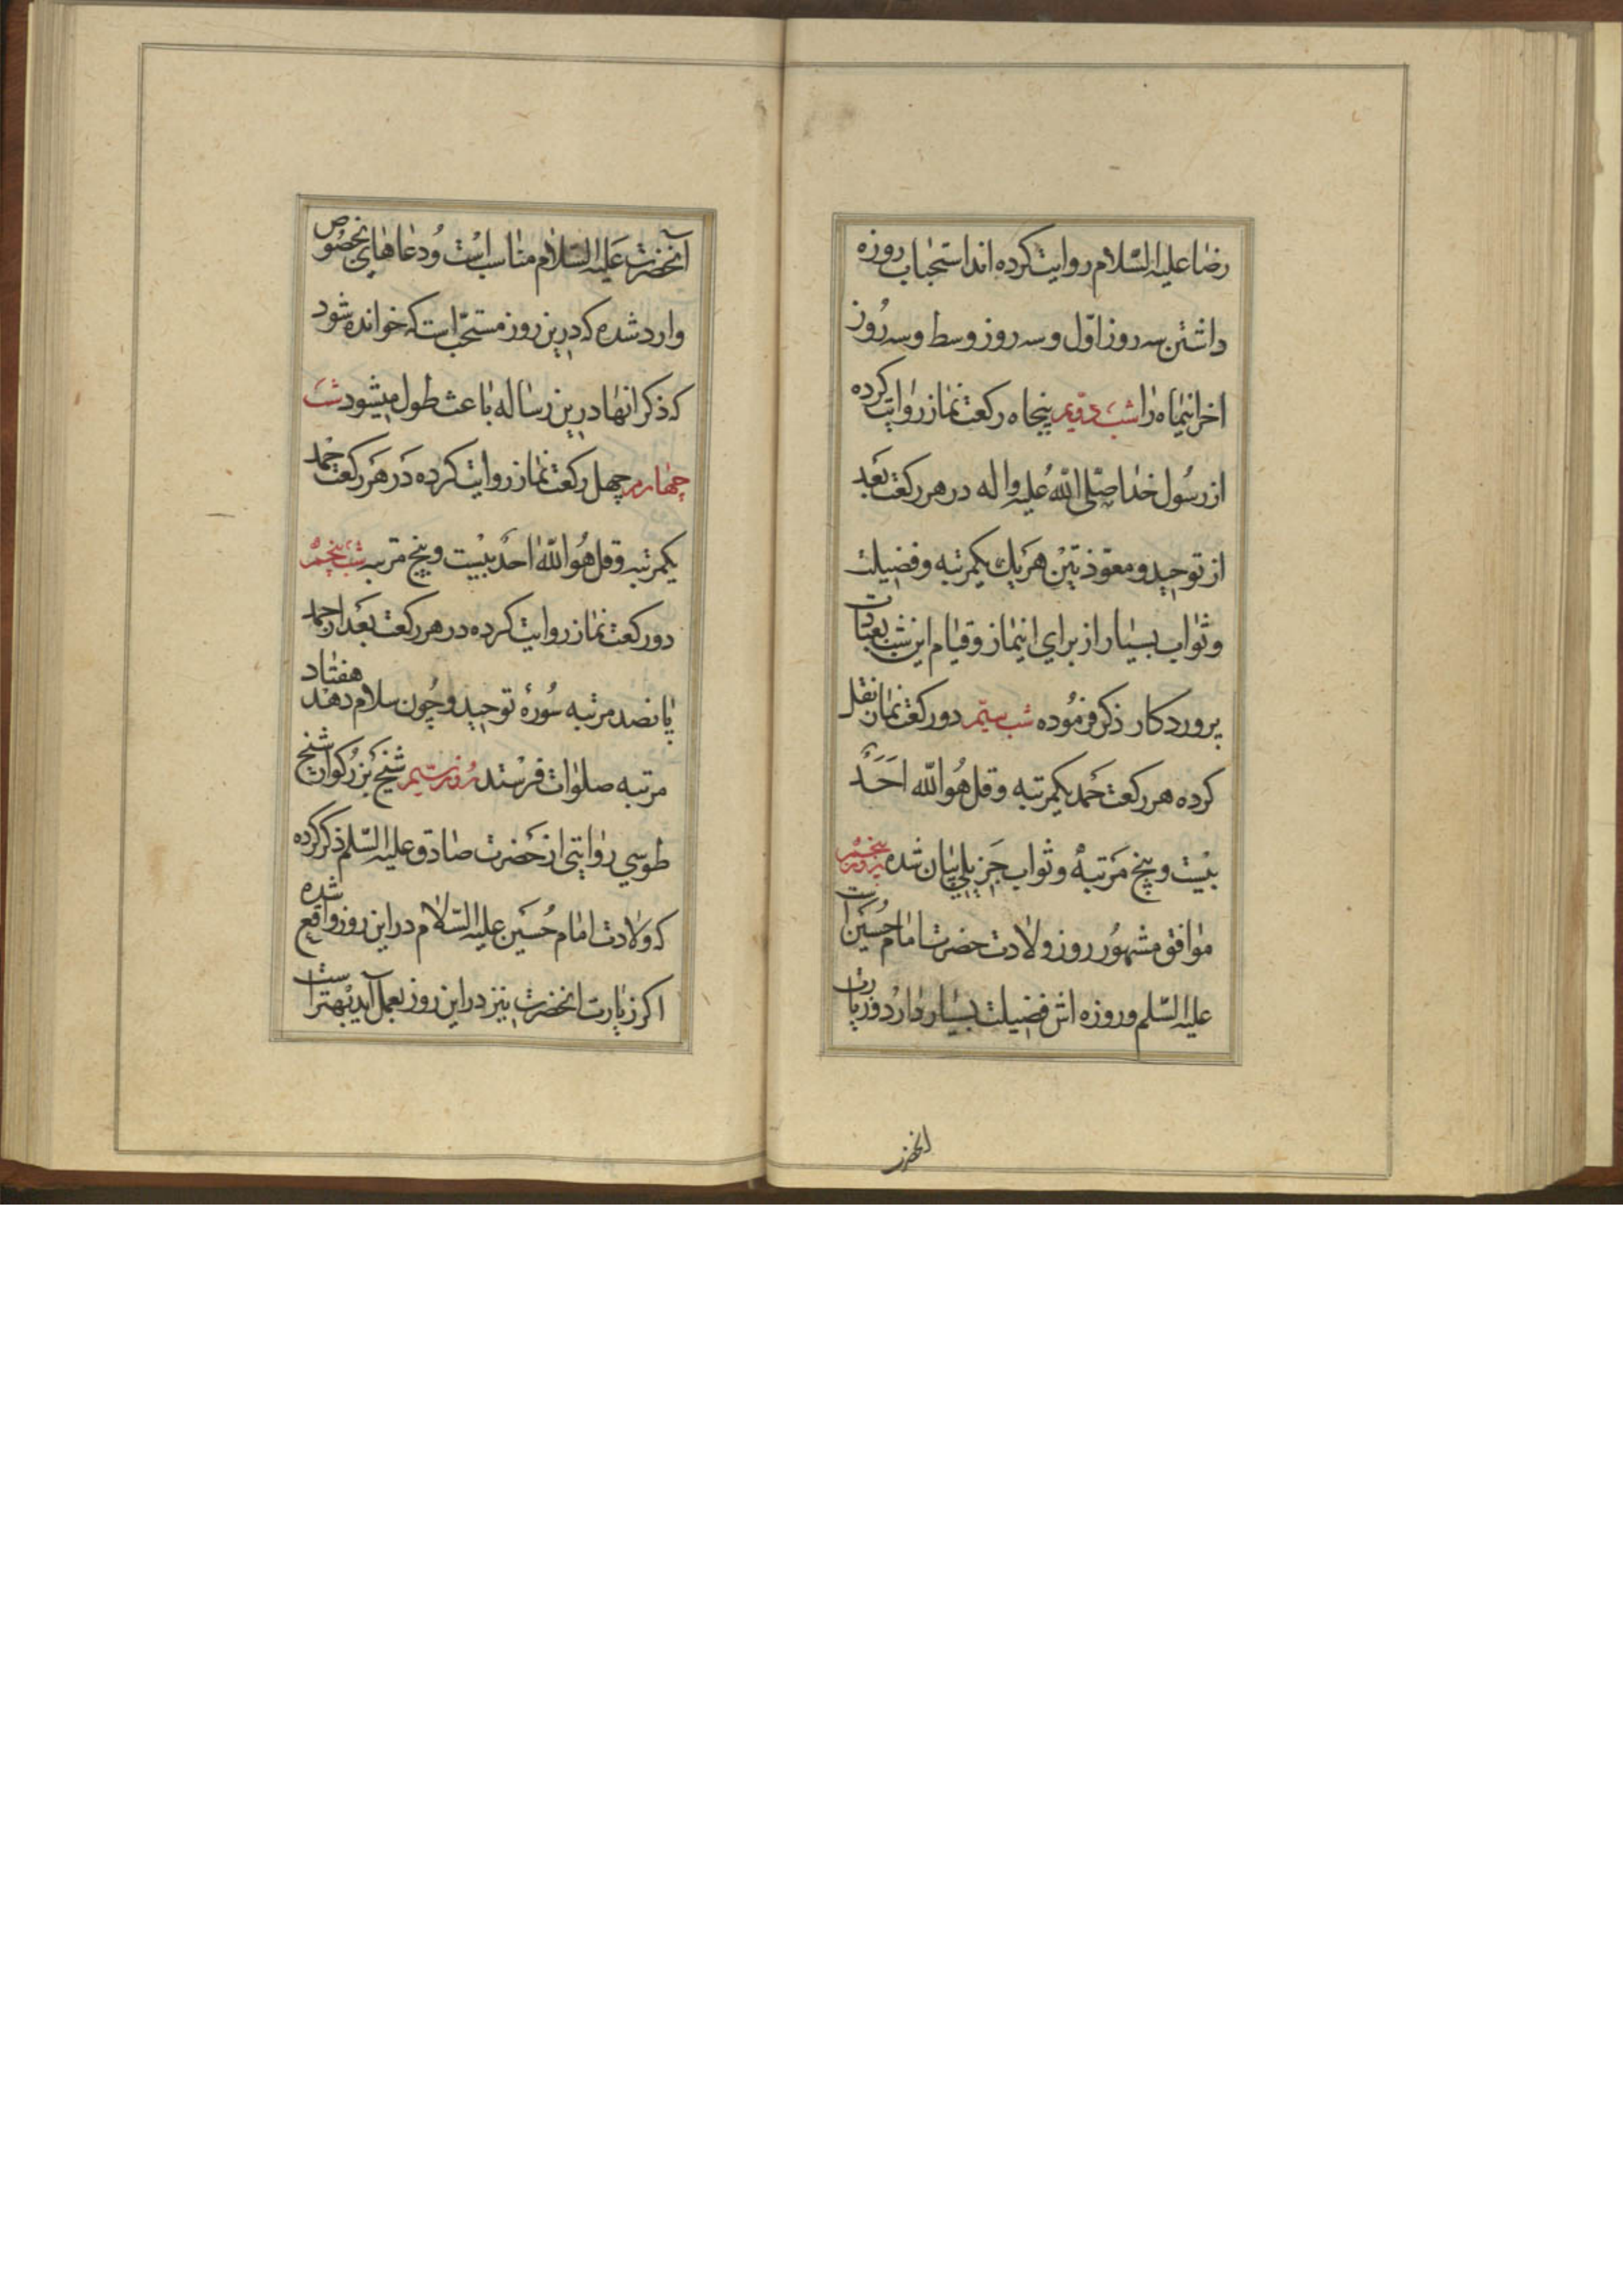 رضا علیه السّلام روایت کرده اند استحباب روزه
داشتن سه روز اوّل و سه روز وسط و سه روز
اخر اینماه را شب دویم پنجاه رکعت نماز روایت کرده
از رسول خدا صلّی اللّه علیه و اله در هر رکعت بعد
از توحید و معوّذتین هر یک یکمرتبه و فضیلت
و ثواب بسیار از برای اینماز و قیام این شب بعبادت
پروردکار ذکر فرموده شب سیّم دو رکعت نماز نقل
کرده هر رکعت حمد یکمرتبه و قل هو اللّه احد
بیست و پنج مرتبه و ثواب جزیلی بیان شده روز
موافق مشهور روز ولادت حضرت امام حسین است
علیه السّلم و روزه اش فضیلت بسیار دارد و زیارت
انحضرت
آنحضرت علیه السّلام مناسب است و دعاهای مخصوص
وارد شده که درین روز مستحبّ است که خوانده شود
که ذکر انها درین رساله باعث طول میشود شب
چهارم چهل رکعت نماز روایت کرده در هر رکعت حمد
یکمرتبه و قل هو اللّه احد بیست و پنج مرتبه شب پنجم
دو رکعت نماز روایت کرده در هر رکعت بعد از حمد
پانصد مرتبه سورهٔ توحید و چون سلام دهد هفتاد
مرتبه صلوات فرستد روز سیم شیخ بزرکوار شیخ
طوسی روایتی از حضرت صادق علیه السّلم ذکر کرده
که ولادت امام حسین علیه السّلام در این روز واقع شده
اکر زیارت انحضرت نیز در این روز بعمل آید بهتر است